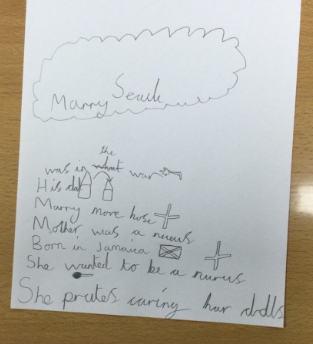 Marry Seuile
the
was in what war
His dad
Marry more hose
Mother was a nurus
Born in Jamaica
She wanted to be a nurus
She prates caring har dolls